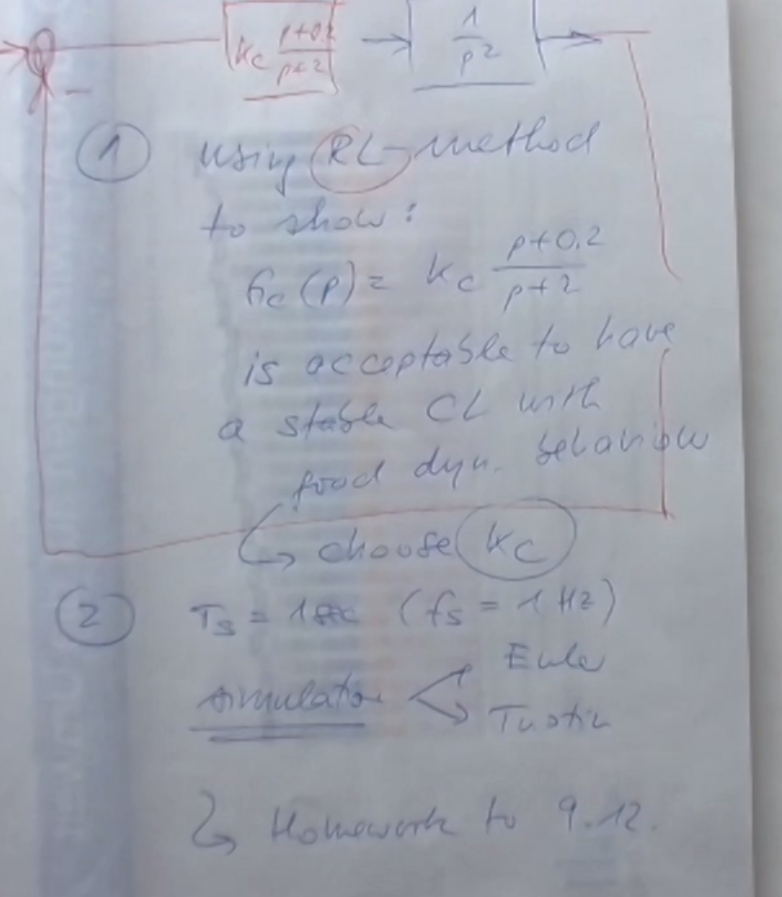 kc p+0.2 / p+2 → 1 / p²
−
① using RL-method
to show:
Gc(p) = kc p+0.2 / p+2
is acceptable to have
a stable CL with
good dyn. behaviour
↳ choose kc
② Ts = 1 sec (fs = 1 Hz)
simulation < Euler
Tustin
↳ Homework to 9.12.